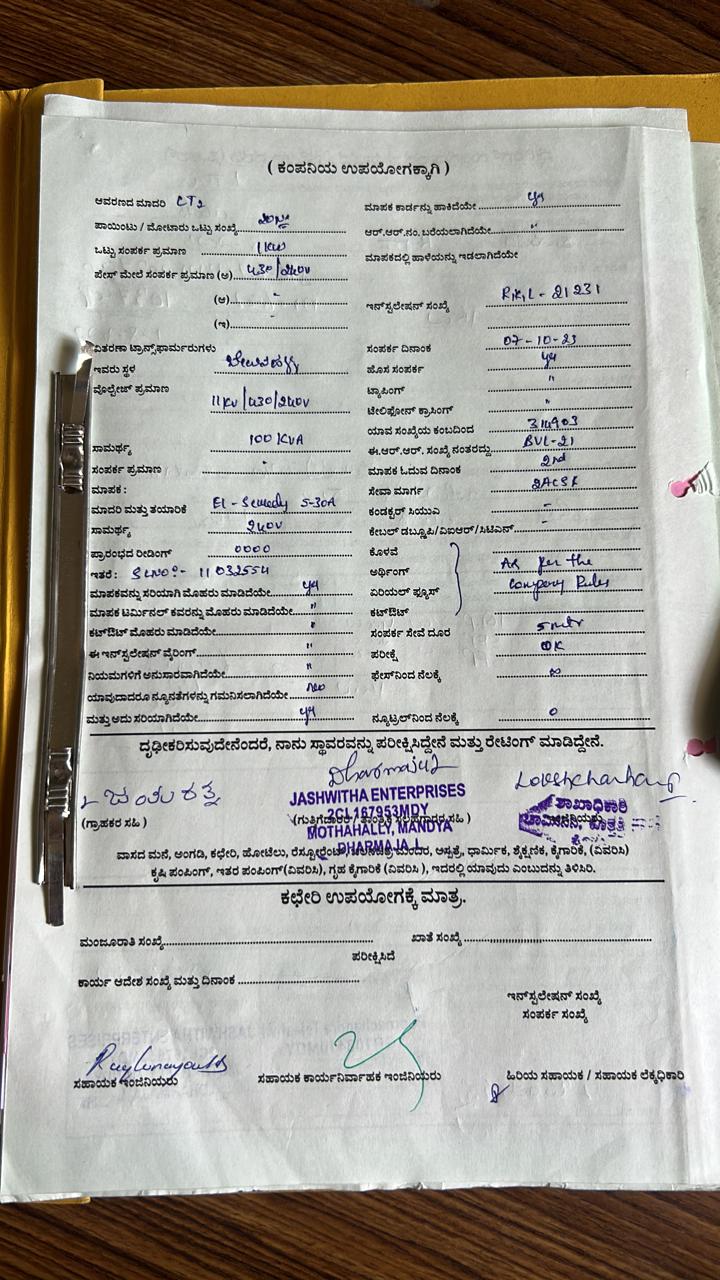 ( ಕಂಪನಿಯ ಉಪಯೋಗಕ್ಕಾಗಿ )
ಆವರಣದ ಮಾದರಿ CT2
ಪಾಯಿಂಟು / ಮೋಟಾರು ಒಟ್ಟು ಸಂಖ್ಯೆ
ಒಟ್ಟು ಸಂಪರ್ಕ ಪ್ರಮಾಣ 1KW
ಪೇಸ್ ಮೇಲೆ ಸಂಪರ್ಕ ಪ್ರಮಾಣ (ಅ) 430/240V
(ಆ) -
(ಇ) -
ವಿತರಣಾ ಟ್ರಾನ್ಸ್‌ಫಾರ್ಮರುಗಳು
ಇವರು ಸ್ಥಳ
ವೊಲ್ಟೇಜ್ ಪ್ರಮಾಣ 11KV/430/240V
ಸಾಮರ್ಥ್ಯ 100 KVA
ಸಂಪರ್ಕ ಪ್ರಮಾಣ
ಮಾಪಕ :
ಮಾದರಿ ಮತ್ತು ತಯಾರಿಕೆ 5-30A
ಸಾಮರ್ಥ್ಯ 240V
ಪ್ರಾರಂಭದ ರೀಡಿಂಗ್ 0000
ಇತರೆ : SLNO:- 11032554
ಮಾಪಕವನ್ನು ಸರಿಯಾಗಿ ಮೊಹರು ಮಾಡಿದೆಯೇ yes
ಮಾಪಕ ಟರ್ಮಿನಲ್ ಕವರನ್ನು ಮೊಹರು ಮಾಡಿದೆಯೇ "
ಕಟ್‌ಔಟ್ ಮೊಹರು ಮಾಡಿದೆಯೇ "
ಈ ಇನ್‌ಸ್ಟಲೇಷನ್ ವೈರಿಂಗ್ "
ನಿಯಮಗಳಿಗೆ ಅನುಸಾರವಾಗಿದೆಯೇ "
ಯಾವುದಾದರೂ ನ್ಯೂನತೆಗಳನ್ನು ಗಮನಿಸಲಾಗಿದೆಯೇ No
ಮತ್ತು ಅದು ಸರಿಯಾಗಿದೆಯೇ yes
ಮಾಪಕ ಕಾರ್ಡನ್ನು ಹಾಕಿದೆಯೇ yes
ಆರ್.ಆರ್.ನಂ. ಬರೆಯಲಾಗಿದೆಯೇ "
ಮಾಪಕದಲ್ಲಿ ಹಾಳೆಯನ್ನು ಇಡಲಾಗಿದೆಯೇ
ಇನ್‌ಸ್ಟಲೇಷನ್ ಸಂಖ್ಯೆ 21231
ಸಂಪರ್ಕ ದಿನಾಂಕ 07-10-23
ಹೊಸ ಸಂಪರ್ಕ yes
ಟ್ಯಾಪಿಂಗ್ "
ಟೇಲಿಫೋನ್ ಕ್ರಾಸಿಂಗ್ "
ಯಾವ ಸಂಖ್ಯೆಯ ಕಂಬದಿಂದ 314903
ಈ.ಆರ್.ಆರ್. ಸಂಖ್ಯೆ ನಂತರದ್ದು BVL-21
ಮಾಪಕ ಓದುವ ದಿನಾಂಕ 2nd
ಸೇವಾ ಮಾರ್ಗ 2ACSR
ಕಂಡಕ್ಟರ್ ಸಿಯುಎ -
ಕೇಬಲ್ ಡಬ್ಲ್ಯೂಪಿ/ವಿಐಆರ್/ಸಿಟಿಎಸ್ -
ಕೊಳವೆ
ಅರ್ಥಿಂಗ್ As per the
ಏರಿಯಲ್ ಫ್ಯೂಸ್ Company Rules
ಕಟ್‌ಔಟ್
ಸಂಪರ್ಕ ಸೇವೆ ದೂರ 5 mtr
ಪರೀಕ್ಷೆ OK
ಫೇಸ್‌ನಿಂದ ನೆಲಕ್ಕೆ ∞
ನ್ಯೂಟ್ರಲ್‌ನಿಂದ ನೆಲಕ್ಕೆ 0
ದೃಢೀಕರಿಸುವುದೇನೆಂದರೆ, ನಾನು ಸ್ಥಾವರವನ್ನು ಪರೀಕ್ಷಿಸಿದ್ದೇನೆ ಮತ್ತು ರೇಟಿಂಗ್ ಮಾಡಿದ್ದೇನೆ.
Dharmaja L
(ಗ್ರಾಹಕರ ಸಹಿ )
JASHWITHA ENTERPRISES
2CL167953MDY
MOTHAHALLY, MANDYA
DHARMAJA.L
ಶಾಖಾಧಿಕಾರಿ
ವಾಸದ ಮನೆ, ಅಂಗಡಿ, ಕಛೇರಿ, ಹೋಟೆಲು, ರೆಸ್ಟೋರೆಂಟ್, ಆಸ್ಪತ್ರೆ, ಧಾರ್ಮಿಕ, ಶೈಕ್ಷಣಿಕ, ಕೈಗಾರಿಕೆ, (ವಿವರಿಸಿ)
ಕೃಷಿ ಪಂಪಿಂಗ್, ಇತರ ಪಂಪಿಂಗ್(ವಿವರಿಸಿ), ಗೃಹ ಕೈಗಾರಿಕೆ (ವಿವರಿಸಿ ), ಇದರಲ್ಲಿ ಯಾವುದು ಎಂಬುದನ್ನು ತಿಳಿಸಿರಿ.
ಕಛೇರಿ ಉಪಯೋಗಕ್ಕೆ ಮಾತ್ರ.
ಮಂಜೂರಾತಿ ಸಂಖ್ಯೆ
ಖಾತೆ ಸಂಖ್ಯೆ
ಪರೀಕ್ಷಿಸಿದೆ
ಕಾರ್ಯ ಆದೇಶ ಸಂಖ್ಯೆ ಮತ್ತು ದಿನಾಂಕ
ಇನ್‌ಸ್ಟಲೇಷನ್ ಸಂಖ್ಯೆ
ಸಂಪರ್ಕ ಸಂಖ್ಯೆ
ಸಹಾಯಕ ಇಂಜಿನಿಯರು
ಸಹಾಯಕ ಕಾರ್ಯನಿರ್ವಾಹಕ ಇಂಜಿನಿಯರು
ಹಿರಿಯ ಸಹಾಯಕ / ಸಹಾಯಕ ಲೆಕ್ಕಧಿಕಾರಿ